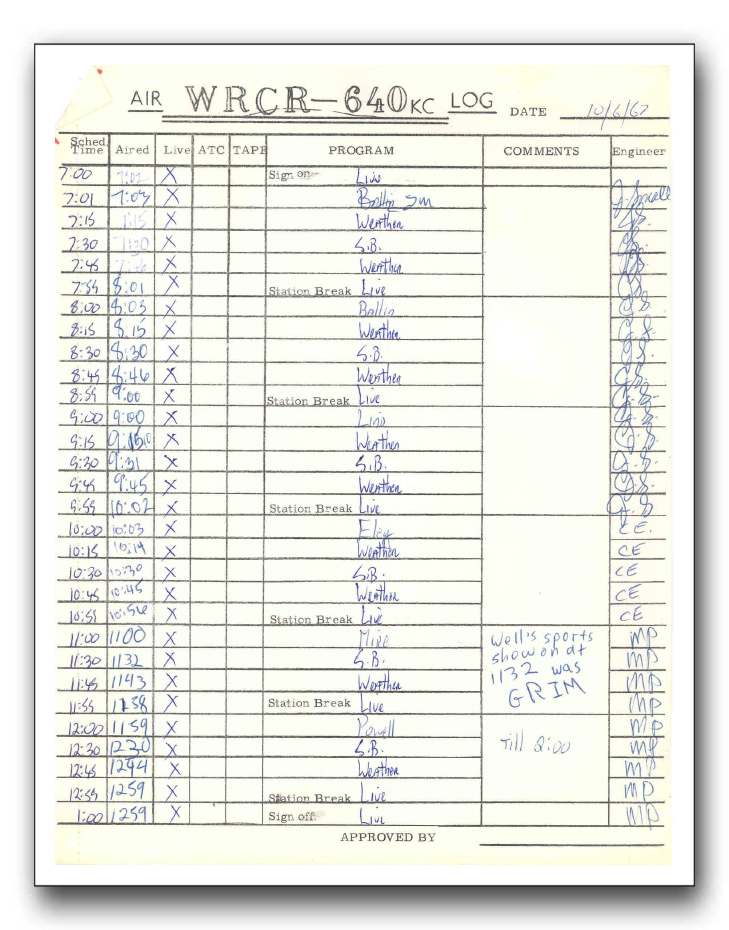 AIR WRCR-640KC LOG DATE 10/6/67
Sched. Time Aired Live ATC TAPE PROGRAM COMMENTS Engineer
7:00 7:02 X Sign on Live
7:01 7:03 X Ballin
7:15 7:15 X Weather
7:30 7:30 X S.B.
7:45 X Weather
7:55 8:01 X Station Break Live
8:00 8:03 X Ballin
8:15 8:15 X Weather
8:30 8:30 X S.B.
8:45 8:46 X Weather
8:55 9:00 X Station Break Live
9:00 9:00 X
9:15 X Weather
9:30 9:31 X S.B.
9:45 9:45 X Weather
9:55 10:02 X Station Break Live
10:00 10:03 X CE.
10:15 10:14 X Weather CE
10:30 10:30 X S.B. CE
10:45 10:45 X Weather CE
10:55 10:56 X Station Break Live CE
11:00 1100 X Mike Well's sports MP
11:30 1132 X S.B. show on at MP
11:45 1143 X Weather 1132 was MP
11:55 1158 X Station Break Live GRIM MP
12:00 1159 X Powell MP
12:30 1230 X S.B. Till 2:00 MP
12:45 1244 X Weather MP
12:55 1259 X Station Break Live MP
1:00 1259 X Sign off Live MP
APPROVED BY